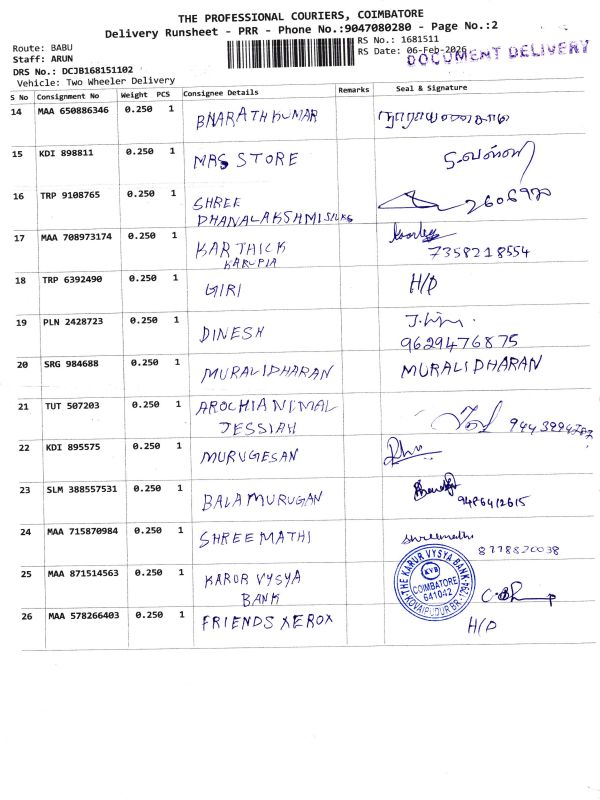 THE PROFESSIONAL COURIERS, COIMBATORE
Delivery Runsheet - PRR - Phone No.:9047080280 - Page No.:2
Route: BABU
RS No.: 1681511
Staff: ARUN
RS Date: 06-Feb-2026
DOCUMENT DELIVERY
DRS No.: DCJB168151102
Vehicle: Two Wheeler Delivery
S No Consignment No Weight PCS Consignee Details Remarks Seal & Signature
14 MAA 650886346 0.250 1 BHARATHKUMAR
15 KDI 898811 0.250 1 MRS STORE
16 TRP 9108765 0.250 1 SHREE
DHANALAKSHMI SILKS
17 MAA 708973174 0.250 1 KARTHICK
KARUPIA 7358218554
18 TRP 6392490 0.250 1 GIRI H/D
19 PLN 2428723 0.250 1 DINESH
9629476875
20 SRG 984688 0.250 1 MURALIDHARAN MURALIDHARAN
21 TUT 507203 0.250 1 AROCHIANIMAL
JESSIAH
22 KDI 895575 0.250 1 MURUGESAN
23 SLM 388557531 0.250 1 BALAMURUGAN
9486412615
24 MAA 715870984 0.250 1 SHREEMATHI shreemathi
25 MAA 871514563 0.250 1 KARUR VYSYA
BANK
THE KARUR VYSYA BANK
KVB
COIMBATORE
641042
KOVAIPUDUR BR.
26 MAA 578266403 0.250 1 FRIENDS XEROX H/D